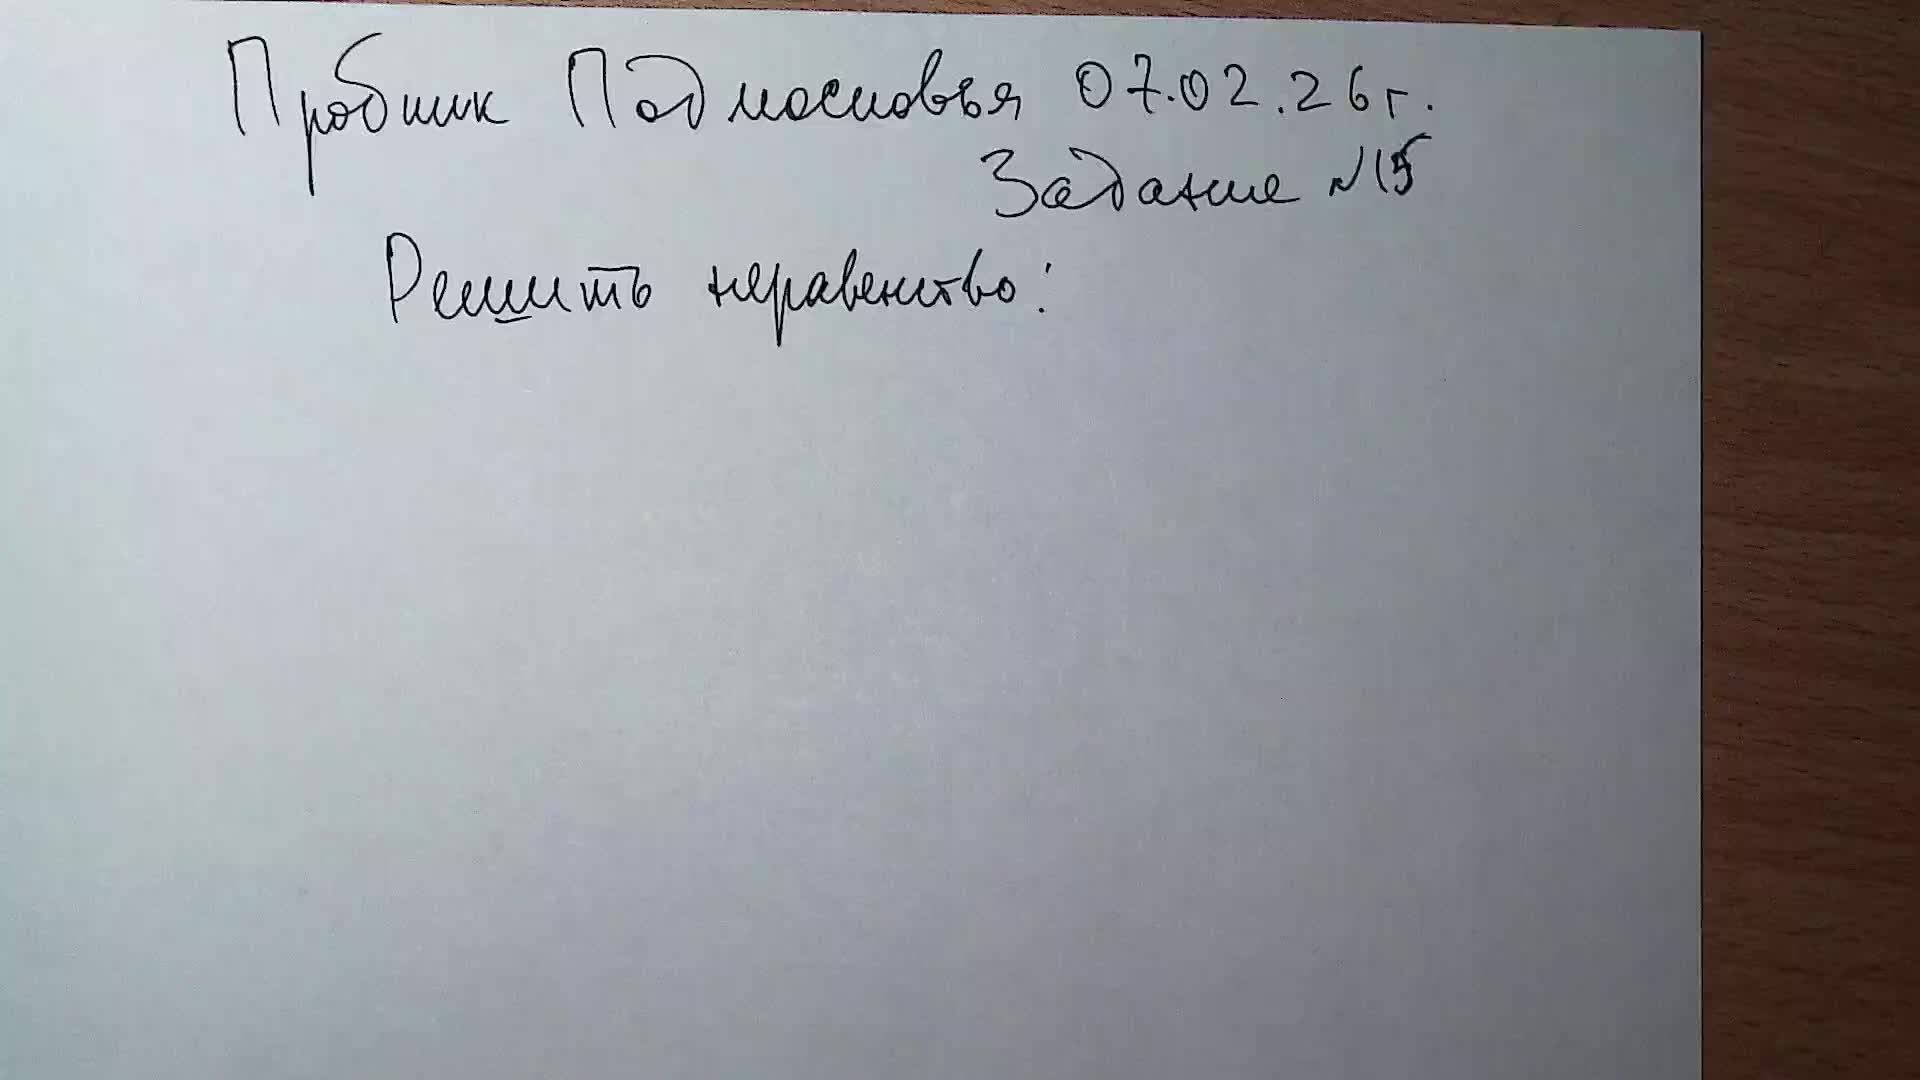 Пробник Подмосковья 07.02.26г.
Задание №15
Решить неравенство: